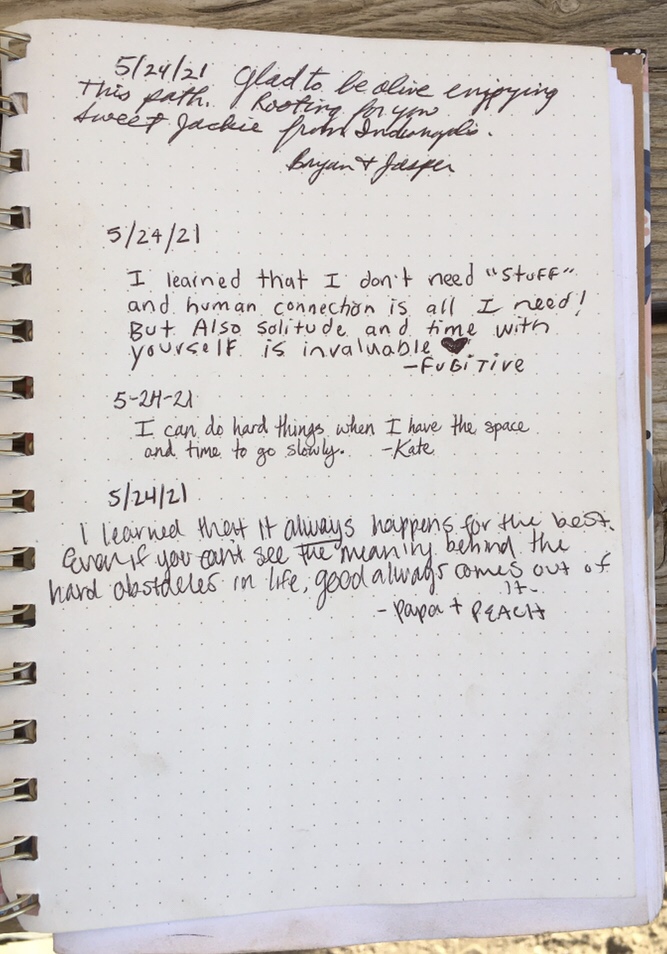 5/24/21 Glad to be alive enjoying
this path. Rooting for you
sweet Jackie from Indianaplis.
Bryan + Jasper
5/24/21
I learned that I don't need "STUFF"
and human connection is all I need!
But Also solitude and time with
yourself is invaluable ♥
-FUGiTive
5-24-21
I can do hard things when I have the space
and time to go slowly. -Kate
5/24/21
I learned that it always happens for the best.
Even if you can't see the meaning behind the
hard obstacles in life, good always comes out of
it.
- Papa + PEACH